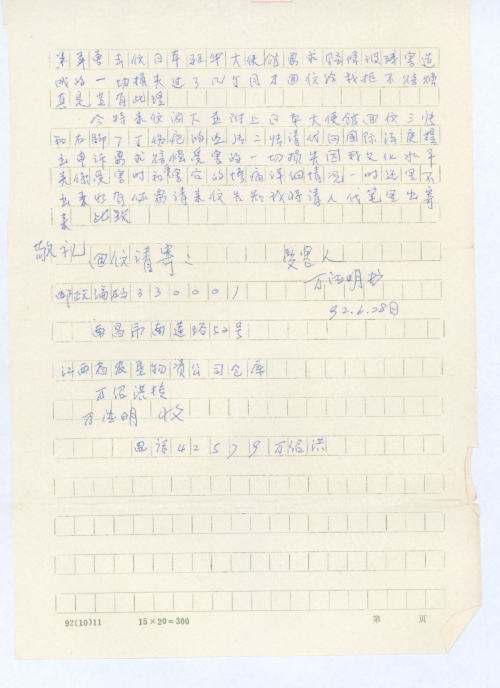 去信日本驻华大使馆要求赔偿被残害造
成的一切损失过了几个月才回信给我拒不赔偿
真是岂有此理
今特来信阁下并附上日本大使馆回信三张
和右脚了丁伤疤的照片二张请代向国际法庭提
出申诉要求赔偿受害的一切损失因我文化水平
关系受害时和害后的惨痛详细情况一时还写不
出来如有必要请来信告知我将请人代笔写出寄
来 此致
敬礼 (回信请寄: 受害人
邮政编码 330001 万德明书
92.6.28日
南昌市南莲路52号
江西省农垦物资公司仓库
万绍洪转
万德明 收
电话 42579 万绍洪
92(10)11 15×20=300 第 页